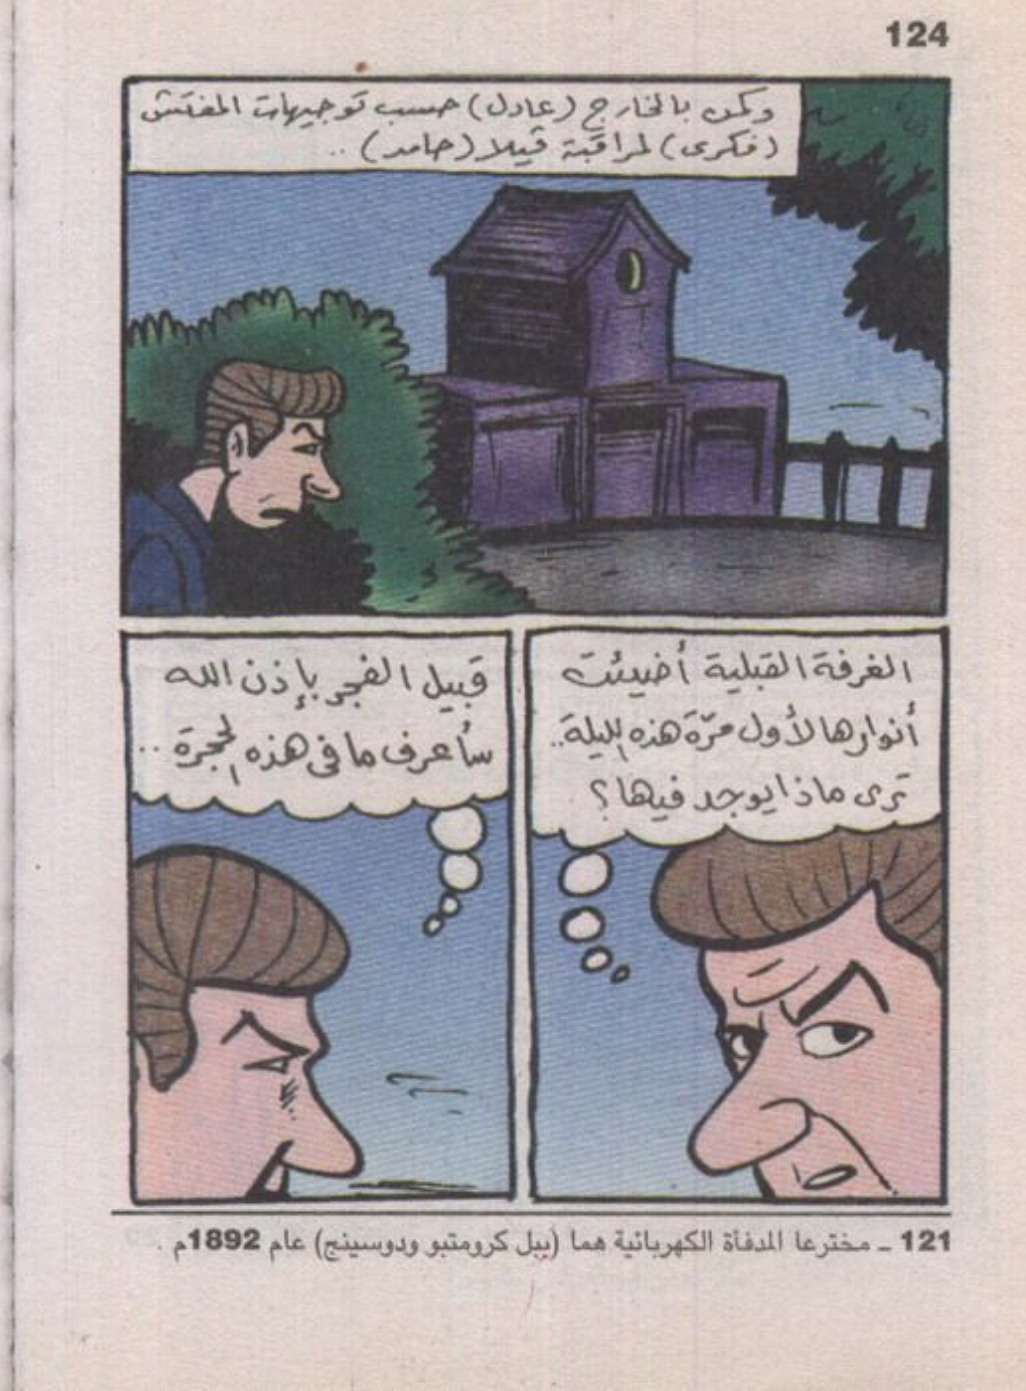 124
وكمن بالخارج (عادل) حسب توجيهات المفتش
(فكرى) لمراقبة ڤيلا (حامد) ..
الغرفة القبلية أضيئت
أنوارها لأول مرّة هذه الليلة..
ترى ماذا يوجد فيها؟
قبيل الفجر بإذن الله
سأعرف ما فى هذه الحجرة ..
121 ـ مخترعا المدفأة الكهربائية هما (بيل كرومتبو ودوسينج) عام 1892م .